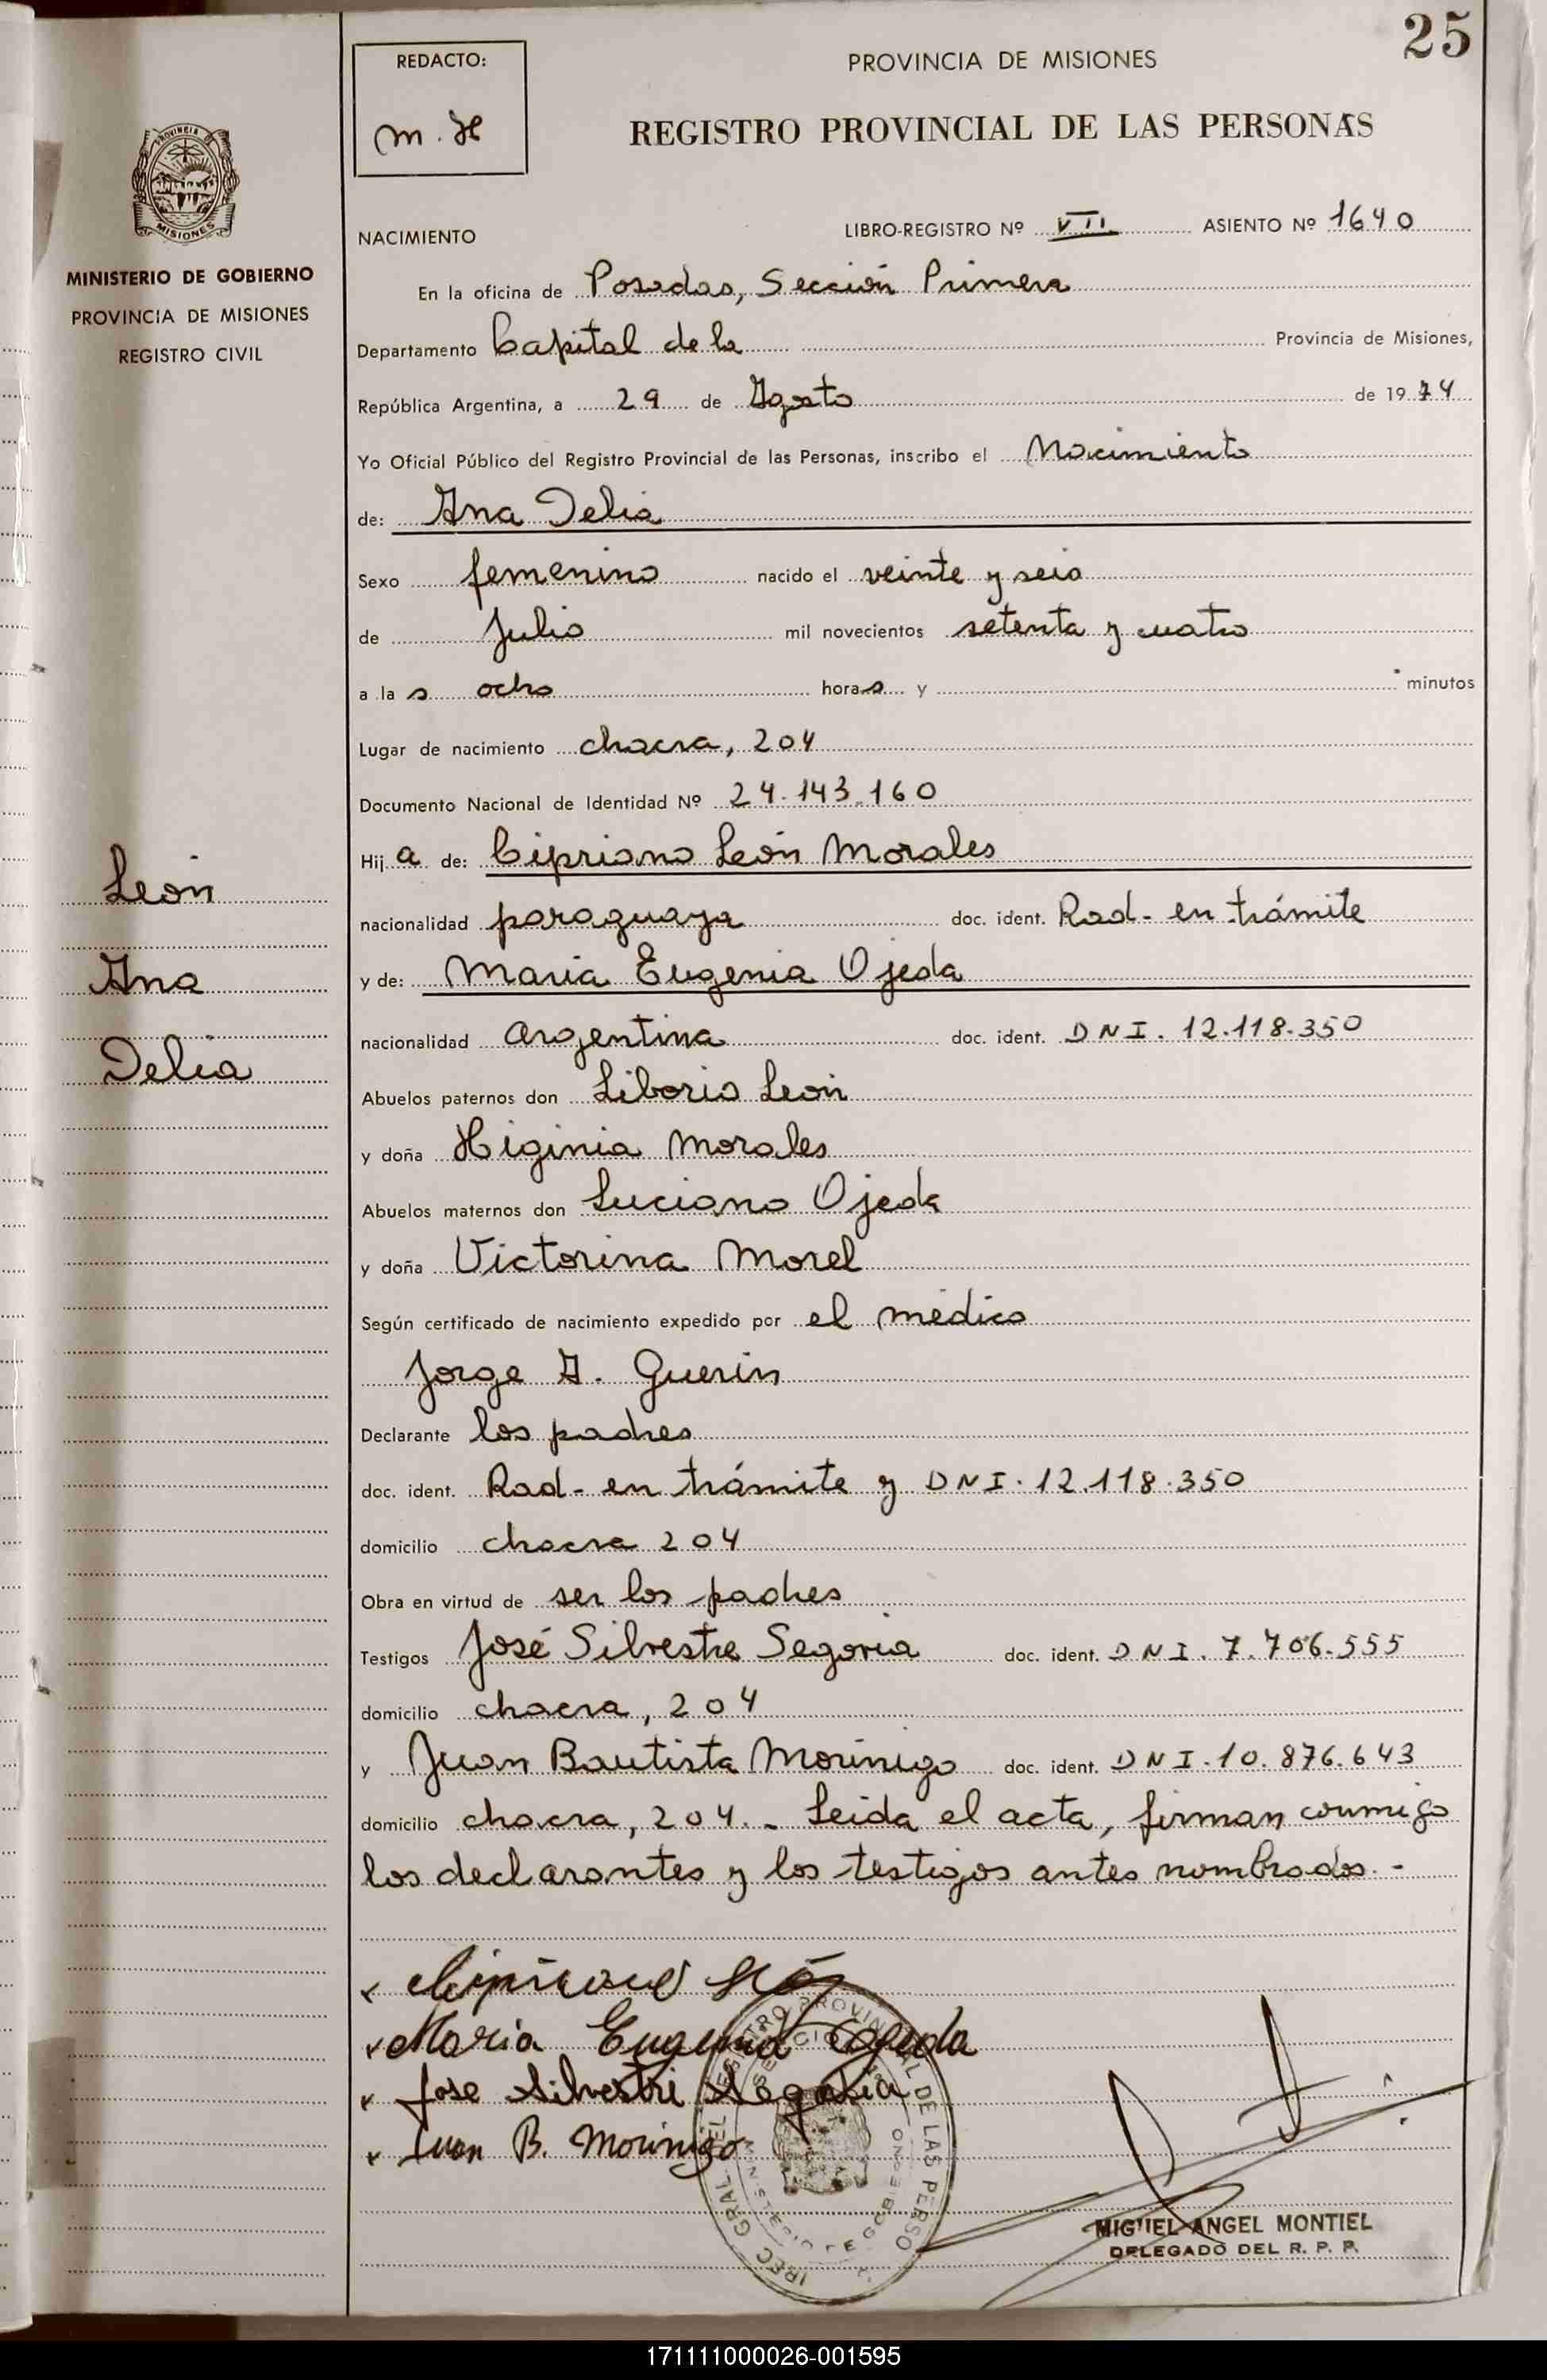 25
REDACTO:
m. H
PROVINCIA DE MISIONES
REGISTRO PROVINCIAL DE LAS PERSONAS
PROVINCIA
MISIONES
MINISTERIO DE GOBIERNO
PROVINCIA DE MISIONES
REGISTRO CIVIL
NACIMIENTO
LIBRO-REGISTRO Nº VII ASIENTO Nº 1640
En la oficina de Posadas, Sección Primera
Departamento Capital de la Provincia de Misiones,
República Argentina, a 29 de Agosto de 1974
Yo Oficial Público del Registro Provincial de las Personas, inscribo el Nacimiento
de: Ana Delia
Sexo femenino nacido el veinte y seis
de Julio mil novecientos setenta y cuatro
a la s ocho hora s y minutos
Lugar de nacimiento chacra, 204
Documento Nacional de Identidad Nº 24.143.160
Hij a de: Cipriano León Morales
nacionalidad paraguaya doc. ident. Rad- en trámite
y de: Maria Eugenia Ojeda
nacionalidad argentina doc. ident. DNI. 12.118.350
Abuelos paternos don Liborio León
y doña Higinia Morales
Abuelos maternos don Luciano Ojeda
y doña Victorina Morel
Según certificado de nacimiento expedido por el médico
Jorge A. Guerin
Declarante los padres
doc. ident. Rad- en trámite y DNI. 12.118.350
domicilio chacra 204
Obra en virtud de ser los padres
Testigos José Silvestre Segovia doc. ident. DNI. 7.706.555
domicilio chacra, 204
y Juan Bautista Morinigo doc. ident. DNI. 10.876.643
domicilio chacra, 204.- Leida el acta, firman conmigo
los declarantes y los testigos antes nombrados.-
León
Ana
Delia
x Cipriano
x Maria Eugenia Ojeda
x Jose Silvestri Segobia
x Juan B. Morinigo
MIGUEL ANGEL MONTIEL
DELEGADO DEL R. P. P.
171111000026-001595